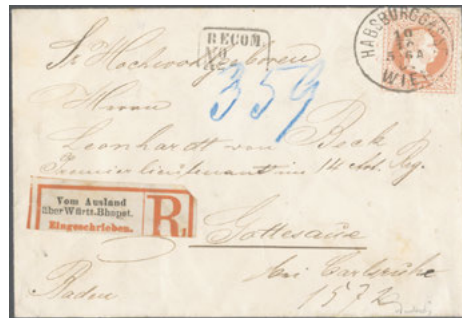 RECOM.
No
359
HABSBURGGASSE
WIEN
Sr Hochwohlgeboren
Herrn
Leonhardt von Beck
Premierlieutenant im 14 Art. Rg.
Vom Ausland
über Württ. Bhapst.
Eingeschrieben.
R
Gottesaue
bei Carlsruhe
Baden
1572